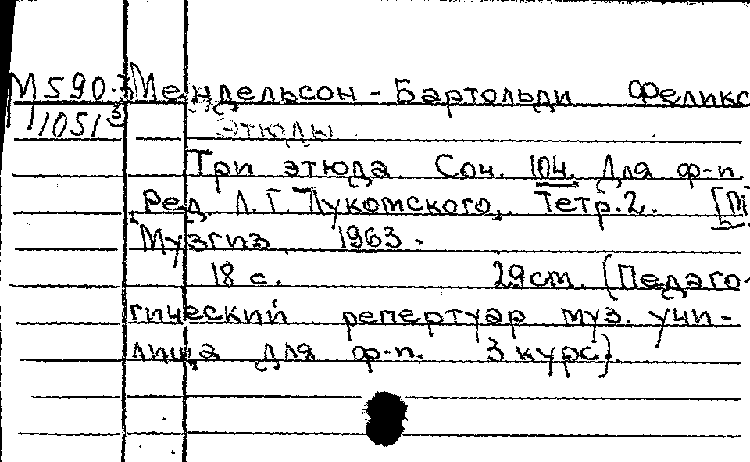 М590.3 Мендельсон-Бартольди Феликс
11051 3 Этюды
Три этюда. Соч. 104. Для ф-п.
Ред. Л. Г. Лукомского. Тетр. 2. [М]
Музгиз, 1963.
18 с. 29 см. (Педаго-
гический репертуар муз. учи-
лища для ф-п. 3 курс).